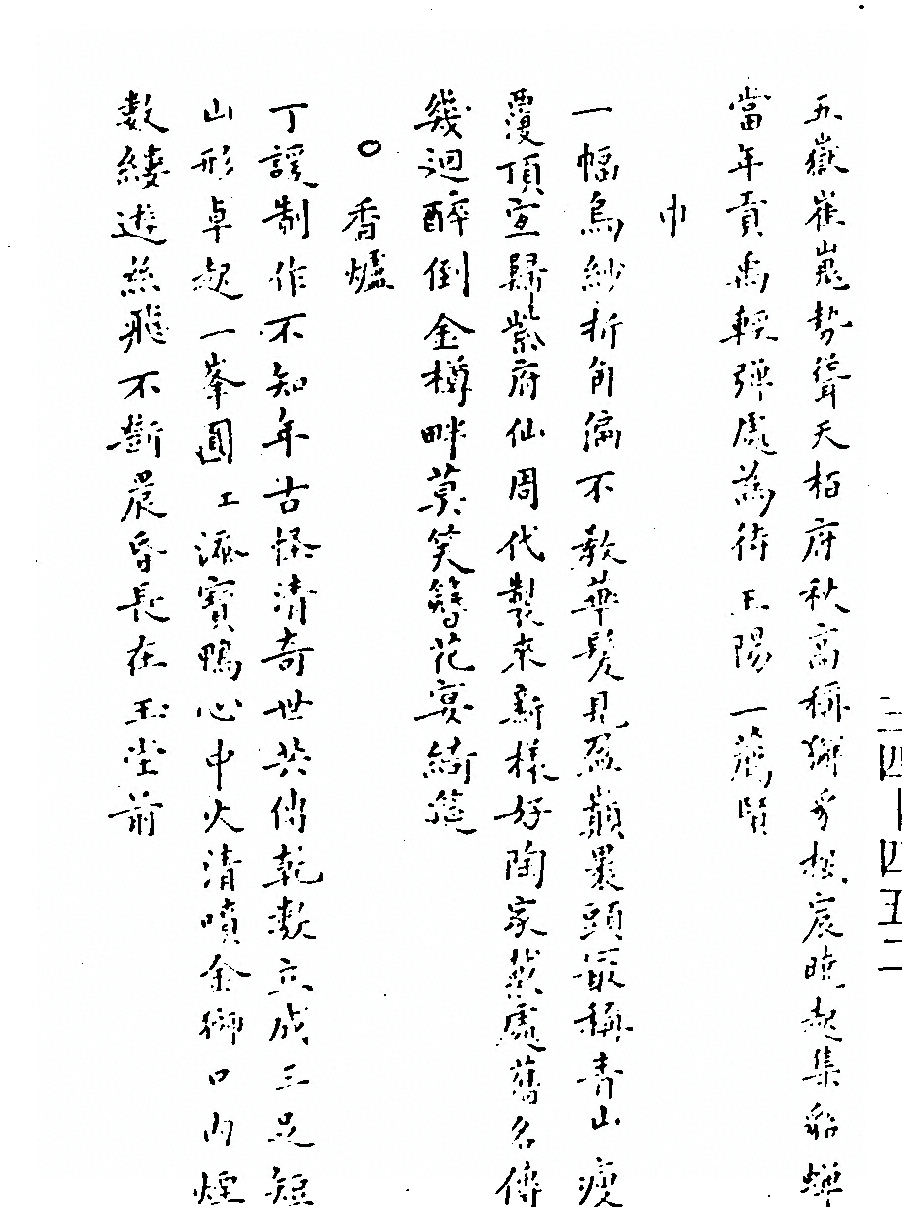 五嶽崔嵬勢聳天栢府秋高稱獬豸楓宸曉起集貂蟬
當年貢禹輕彈處為待王陽一薦賢
巾
一幅烏紗折角偏不教華髮見盈巔裹頭最稱青山瘦
覆頂宜歸紫府仙周代製來新樣好陶家漉處舊名傳
幾迴醉倒金樽畔莫笑簪花宴綺筵
○ 香爐
丁諼制作不知年古怪清奇世共傳乾數立成三足短
山形卓起一峯圓工添寶鴨心中火清噴金獅口內煙
數縷遊絲飛不斷晨昏長在玉堂前
二四—四五二